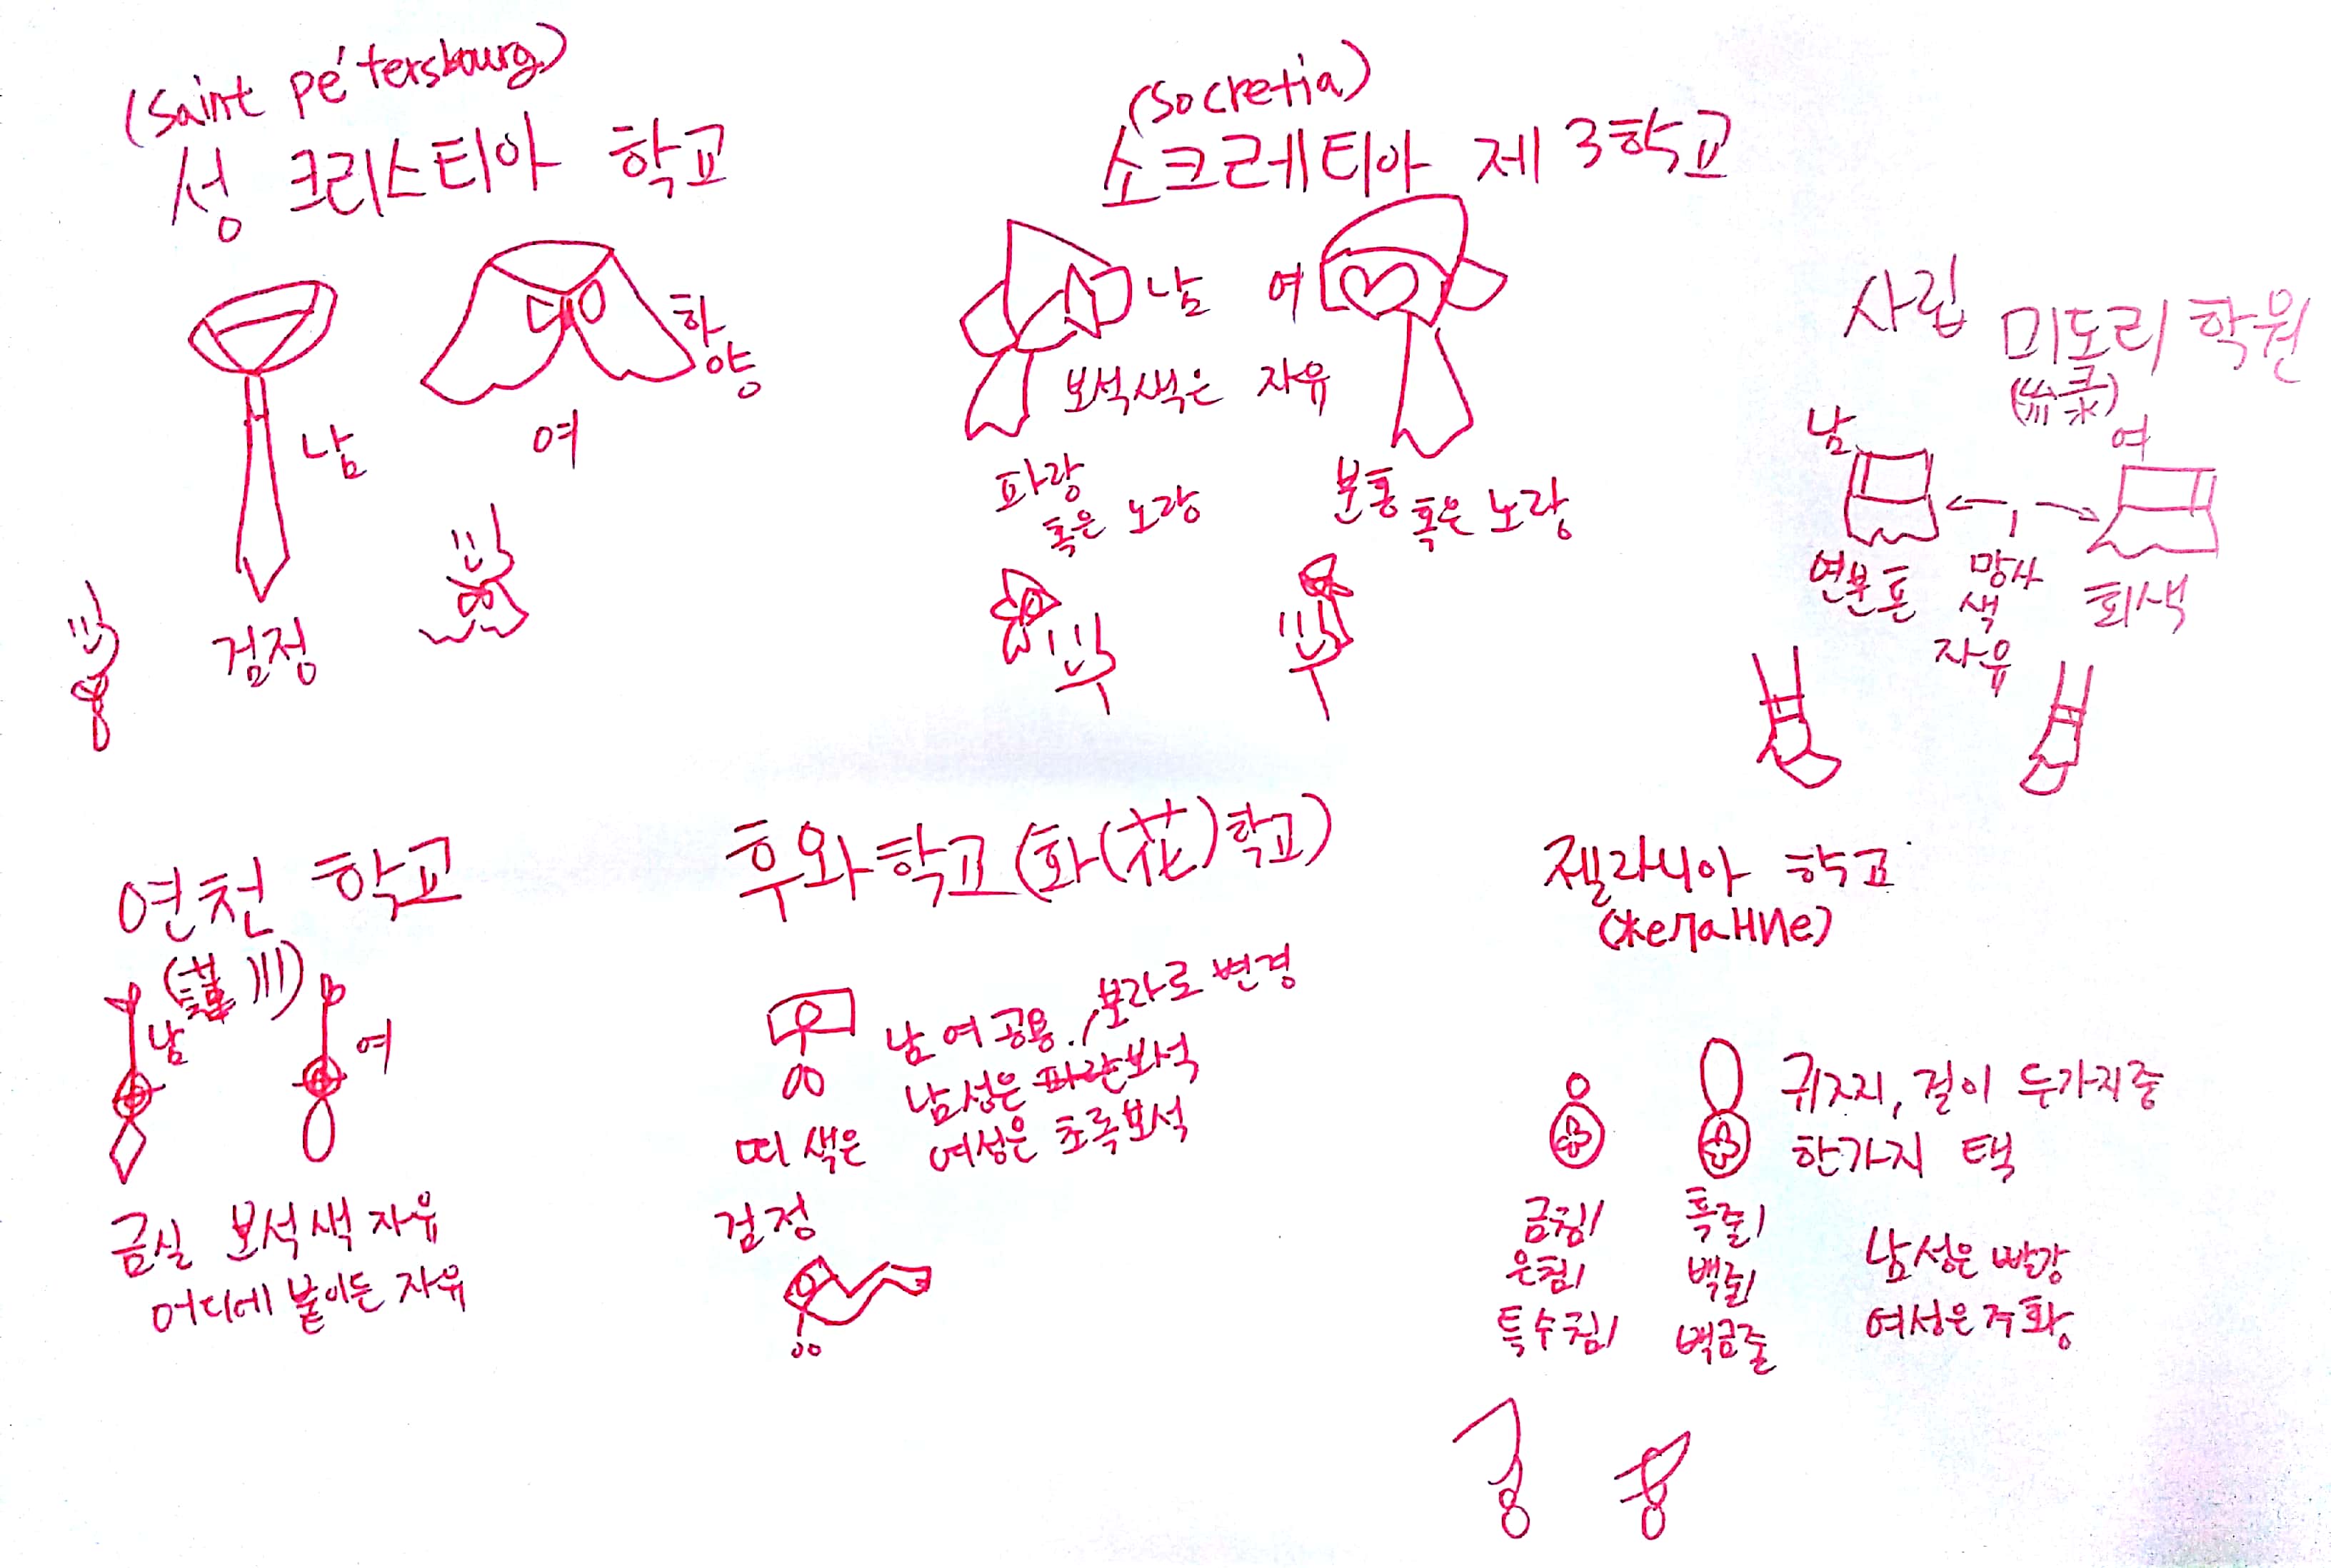 (Saint pétersbourg)
성 크리스티아 학교
남
검정
여
하양
(Socretia)
소크레티아 제 3학교
남
여
보석색은 자유
파랑
혹은 노랑
분홍
혹은 노랑
사립 미도리 학원
(綠)
남
여
연분홍
망사
색
자유
회색
연천 학교
남
여
금실 보석색 자유
어디에 붙이든 자유
후와학교(화(花)학교)
남여공용. / 보라로 변경
남성은 파란보석
여성은 초록보석
띠 색은
검정
젤라니아 학교
(желание)
귀찌, 걸이 두가지중
한가지 택
금침/
은침/
특수침/
흑줄/
백줄/
백금줄
남성은 빨강
여성은 주황